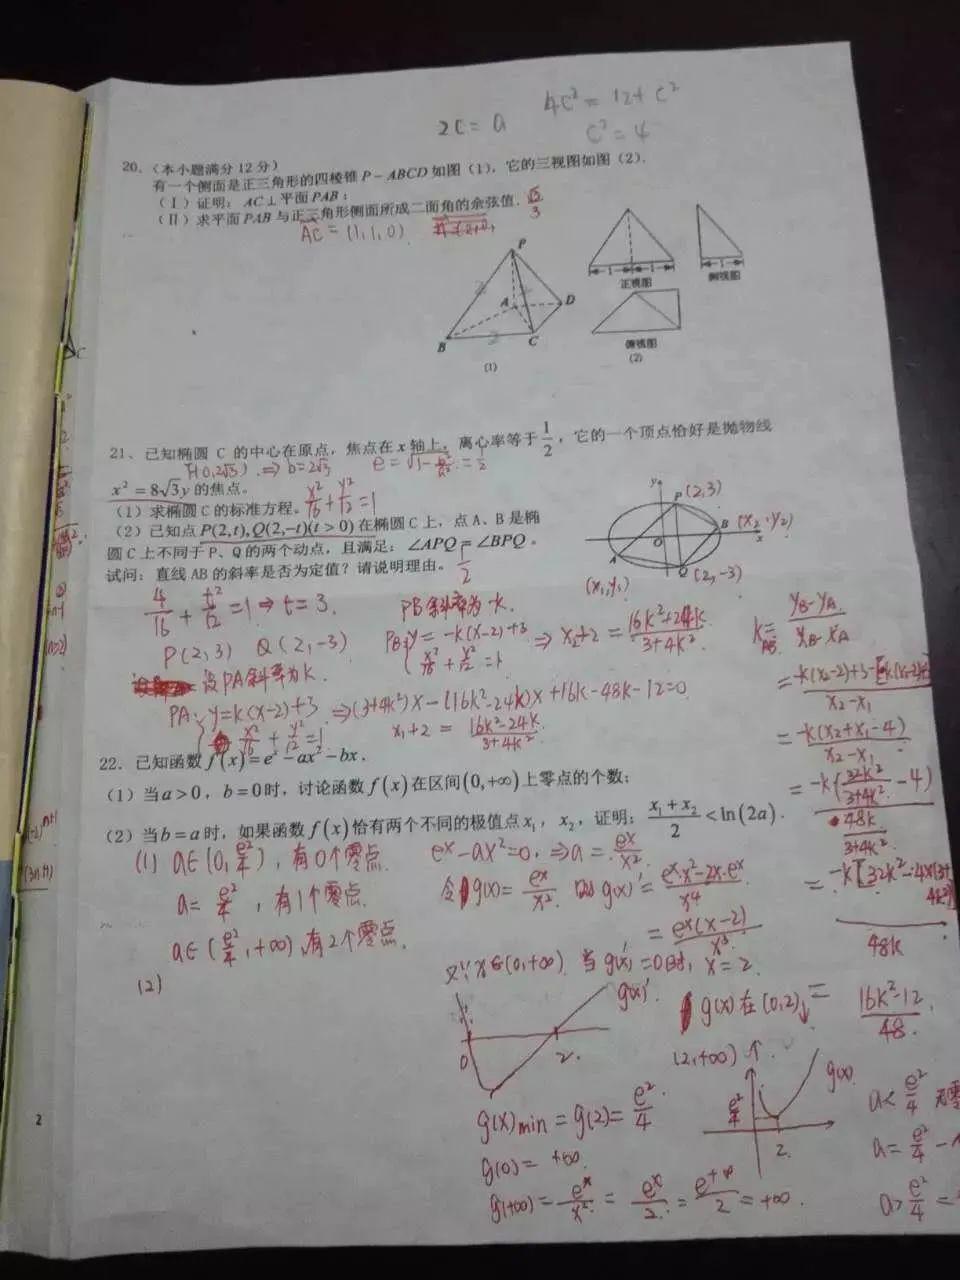 2C = a
4C² = 12 + C²
C² = 4
20.（本小题满分12分）
有一个侧面是正三角形的四棱锥 P－ABCD 如图（1），它的三视图如图（2）.
（Ⅰ）证明：AC⊥平面 PAB；
（Ⅱ）求平面 PAB 与正三角形侧面所成二面角的余弦值.
AC = (1,1,0)
P
A
D
B
C
(1)
1 1
正视图
1
侧视图
俯视图
(2)
21、已知椭圆 C 的中心在原点，焦点在 x 轴上，离心率等于 1/2，它的一个顶点恰好是抛物线
F(0,2√3) ⇒ b=2√3
x² = 8√3y 的焦点。
（1）求椭圆 C 的标准方程。
x²/16 + y²/12 = 1
（2）已知点 P(2,t),Q(2,-t)(t>0) 在椭圆 C 上，点 A、B 是椭
圆 C 上不同于 P、Q 的两个动点，且满足：∠APQ = ∠BPQ。
试问：直线 AB 的斜率是否为定值？请说明理由。
1/2
y
P (2,3)
B (x₂,y₂)
O
x
A
Q (2,-3)
(x₁,y₁)
4/16 + t²/12 = 1 ⇒ t = 3.
P(2,3) Q(2,-3)
设PA斜率为k.
PA: y=k(x-2)+3 ⇒ (3+4k²)x - (16k²-24k)x + 16k-48k-12=0
x²/16 + y²/12 = 1
x₁+2 = 16k²-24k / 3+4k²
PB斜率为-k.
PB: y=-k(x-2)+3 ⇒ x₂+2 = 16k²+24k / 3+4k²
x²/16 + y²/12 = 1
k AB = y_B-y_A / x_B-x_A
= -k(x₂+x₁-4) / x₂-x₁
= -k(32k²/3+4k² - 4) / 48k/3+4k²
48k
= 16k²-12 / 48
22. 已知函数 f(x)=eˣ-ax²-bx.
（1）当 a>0，b=0时，讨论函数 f(x) 在区间(0,+∞)上零点的个数；
（2）当 b=a 时，如果函数 f(x) 恰有两个不同的极值点 x₁，x₂，证明：x₁+x₂/2 < ln(2a).
(1) a∈(0, e²/4), 有0个零点.
a = e²/4, 有1个零点.
a∈(e²/4, +∞), 有2个零点.
(2)
eˣ-ax²=0, ⇒ a = eˣ/x²
令g(x) = eˣ/x² 则g(x)' = eˣ·x²-2x·eˣ / x⁴
= eˣ(x-2)/x³
又∵x∈(0,+∞) 当g(x)'=0时, x=2.
g(x)'
0
2
g(x)在(0,2)↓
(2,+∞)↑.
g(x)
e²/4
2
g(x)min = g(2) = e²/4
g(0) = +∞
g(+∞) = eˣ/x² = eˣ/2 = e^+∞/2 = +∞
a< e²/4
a = e²/4
a> e²/4
2